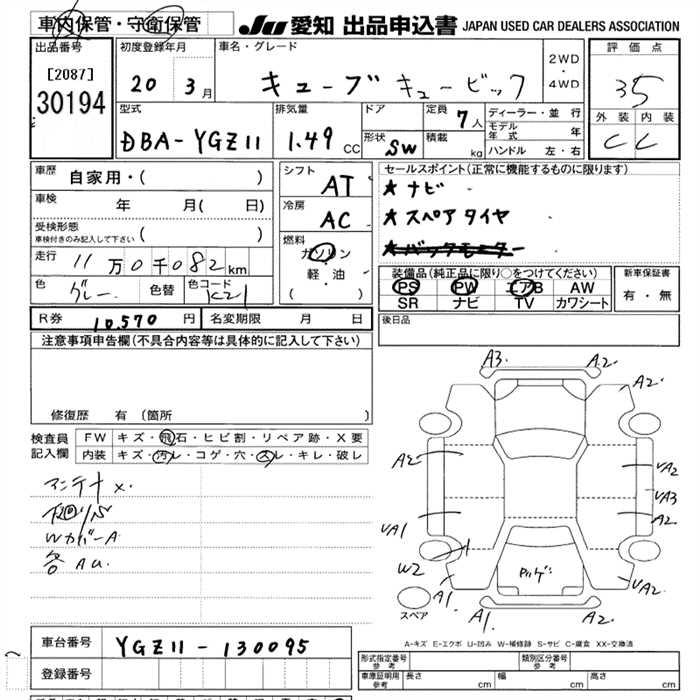 車内保管・守衛保管
JU 愛知 出品申込書 JAPAN USED CAR DEALERS ASSOCIATION
出品番号
[2087]
30194
初度登録年月
20 3月
車名・グレード
キューブ キュービック
2WD
・
4WD
評価点
35
外装 内装
C C
型式
DBA-YGZ11
排気量
1.49 CC
ドア
形状 SW
定員 7人
積載 kg
ディーラー・並行
モデル年式 年
ハンドル 左・右
車歴
自家用・( )
車検
年 月( 日)
受検形態
車検付きのみ記入して下さい ( )
走行
11万0千082km
色
グレー
色替
色コード
K21
シフト
AT
冷房
AC
燃料
ガソリン
・
軽・油
( )
セールスポイント(正常に機能するものに限ります)
★ナビ
★スペアタイヤ
★バックモニター
装備品(純正品に限り○をつけてください)
PS PW エアB AW
SR ナビ TV カワシート
新車保証書
有・無
後日品
R券 10,570円
名変期限 月 日
注意事項申告欄(不具合内容等は具体的に記入して下さい)
修復歴 有(箇所 )
検査員
記入欄
FW キズ・飛石・ヒビ割・リペア跡・X要
内装 キズ・汚レ・コゲ・穴・スレ・キレ・破レ
アンテナX.
下廻リS
WカバーA
各AU.
A3. A2.
A2.
A2
UA2
UA3
A2
UA1
W2
A1.
UA2.
A1. A2.
スペア
A-キズ E-エクボ U-凹み W-補修跡 S-サビ C-腐食 XX-交換済
車台番号
YGZ11-130095
登録番号
形式指定番号
参考
類別区分番号
参考
車庫証明用
参考
長さ cm
幅 cm
高さ cm